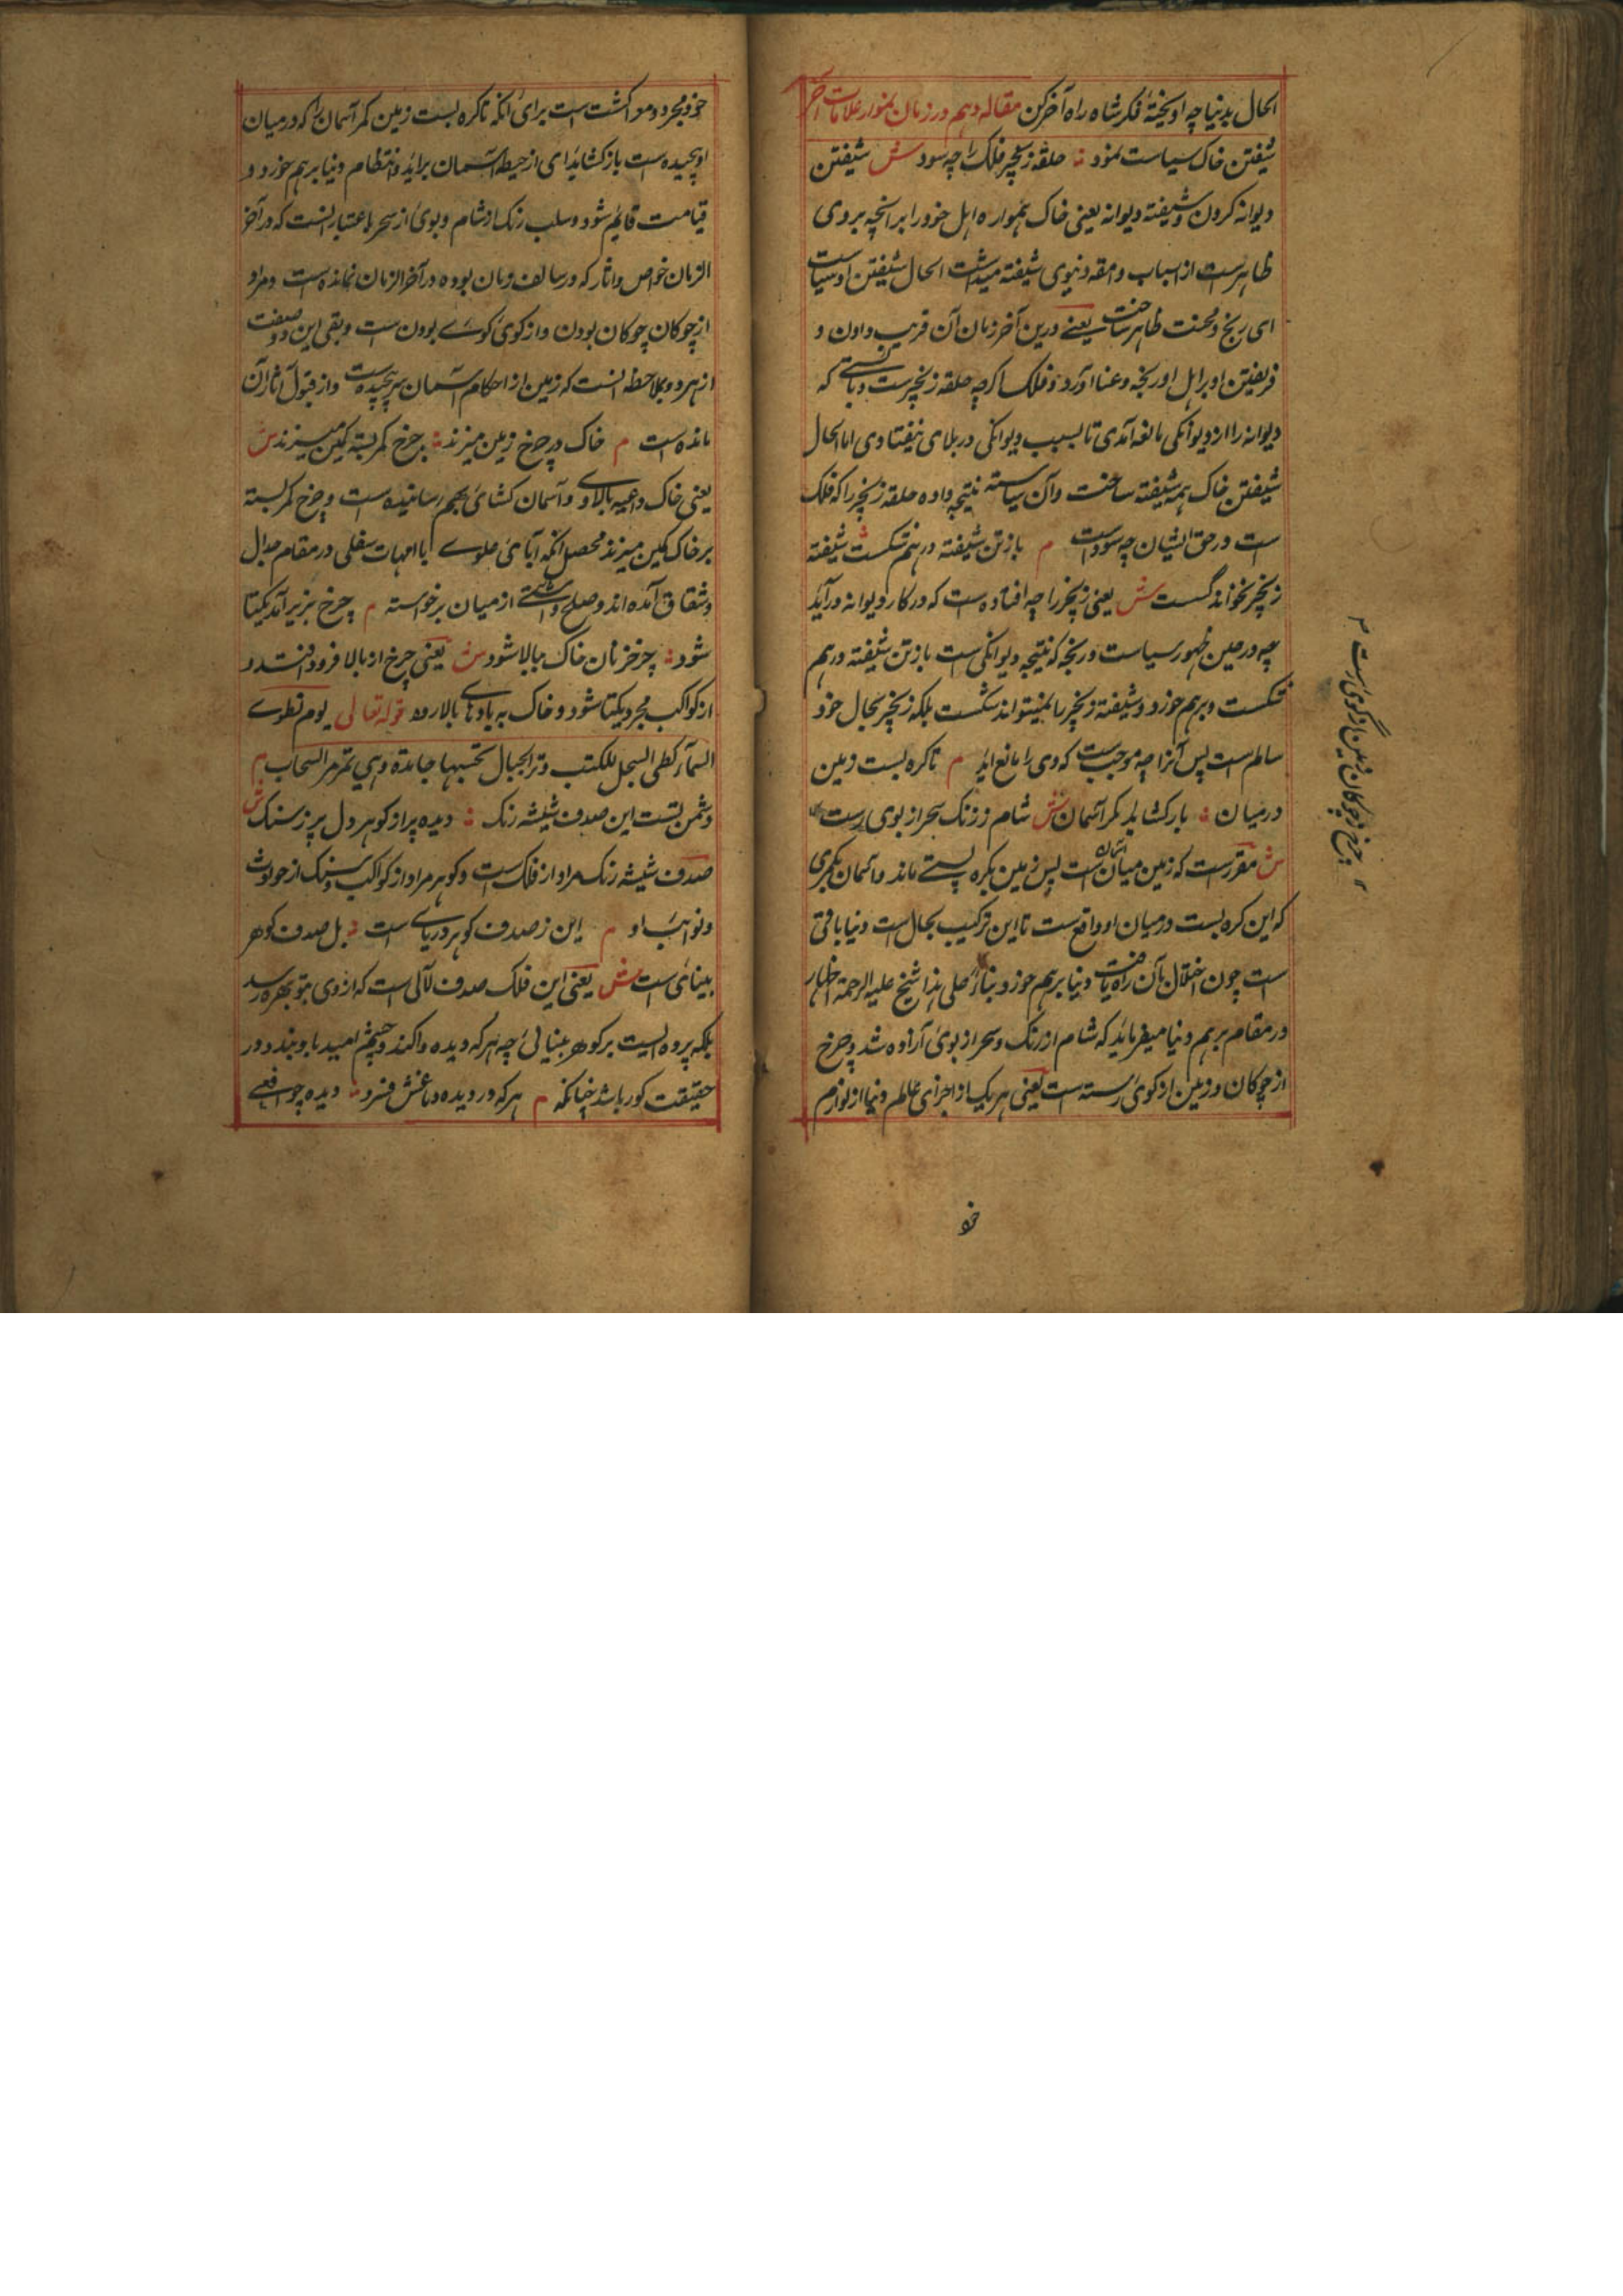 الحال بدنیا چه اویختهٔ فکر شاه راه آخر کن مقاله دهم در زمان بنمودار علامات آخر
شیفتن خاک سیاست نمود حلقه زنجیر فلک را چه سود ش شیفتن
دیوانه کردن و شیفته دیوانه یعنی خاک همواره اهل خود را بر انچه بروی
ظاهرست از اسباب و امتعه دنیوی شیفته میداشت الحال شیفتن او سیاست
ای رنج و محنت ظاهر ساخت یعنے درین آخر زمان آن فریب دادن و
فریفتن او بر اهل او رنجه و عنا آورد و فلک اگرچه حلقه زنجیرست و بایستے که
دیوانه را از دیوانگی مانع آمدی تا بسبب دیوانگی در بلای نیفتادی اما الحال
شیفتن خاک همه شیفته ساخت و آن سیاسته نتیجه داده حلقه زنجیر را که فلک
است در حق ایشان چه سود است م باز تن شیفته درهم شکست شیفته
زنجیر نخواند گسست ش یعنی زنجیر را چه افتاده است که در کار دیوانه درآید
چه در عین ظهور سیاست و رنجه که نتیجه دیوانگی است باز تن شیفته درهم
شکست و برهم خورد و شیفته زنجیر را نمیتواند شکست بلکه زنجیر بحال خود
سالم است پس آنرا چه موجب است که وی را مانع اید م تا کره بست زمین
درمیان باز کشاید کمر آسمان ش شام ز رنگ سحر از بوی رست
ش مقررست که زمین میان آسمان است پس زمین بکره بستے ماند و آسمان بکمری
که این کره بست درمیان او واقع ست تا این ترکیب بحال است دنیا باقی
است چون اختلال بآن راه یافت دنیا برهم خورد بناءً علی هذا شیخ علیه الرحمة اظهار
در مقام برهم دنیا میفرماید که شام از رنگ و سحر از بوی آزاده شد و چرخ
از چوکان و زمین از کوی رسته است یعنی هر یک از اجزای عالم دنیا از لوازم
چرخ ز چوکان زمین از کوی رست
خو
خود مجرد و معرا گشت است برای آنکه تا کره بست زمین کمر آسمان را که درمیان
او پیچیده ست باز کشاید ای از حیطه آسمان براید و انتظام دنیا برهم خورد و
قیامت قایم شود و سلب رنگ از شام و بوی از سحر باعتبار انست که در آخر
الزمان خواص و اثار که در سالف زمان بوده در آخر الزمان نمانده ست و مراد
از چوکان چوکان بودن و از کوی کوے بودن ست و بقی این دو صفت
از هر دو بملاحظه انست که زمین از احکام آسمان سر پیچیده ست و از قبول آثار آن
مانده ست م خاک در چرخ زمین میزند چرخ کمر بسته کمین میزند ش
یعنی خاک داعیه بالاوے و آسمان کشای بهم رسانیده ست و چرخ کمر بسته
بر خاک کمین میزند محصل انکه آبای علوے با امهات سفلی در مقام جدال
و شقاق آمده اند و صلح و آشتے از میان برخواسته م چرخ بزیر آمد یکتا
شود چرخ زنان خاک ببالا شود ش یعنی چرخ از بالا فرود افتد و
از کواکب مجرد و یکتا شود و خاک به بادهاے بالا رود قوله تعالی یوم نطوے
السمآء کطی السجل للکتب و تر الجبال تحسبها جامدة وهي تمر مر السحاب م
دشمن تست این صدف شیشه رنگ دیده پر از کوهر و دل پر ز سنگ ش
صدف شیشه رنگ مراد از فلک است و کوهر مراد از کواکب و سنگ از حوادث
و نوائب او م این ز صدف کوهر دریاے است بل صدف کوهر
بینائی است ش یعنی این فلک صدف لآلی است که از وی بتو بهره رسد
بلکه پرده ایست بر کوهر بینائی چه هر که دیده واکند و چشم امید باو بندد در
حقیقت کور باشد چنانکه م هر که در دیده دماغش فسرد دیده چو افعے